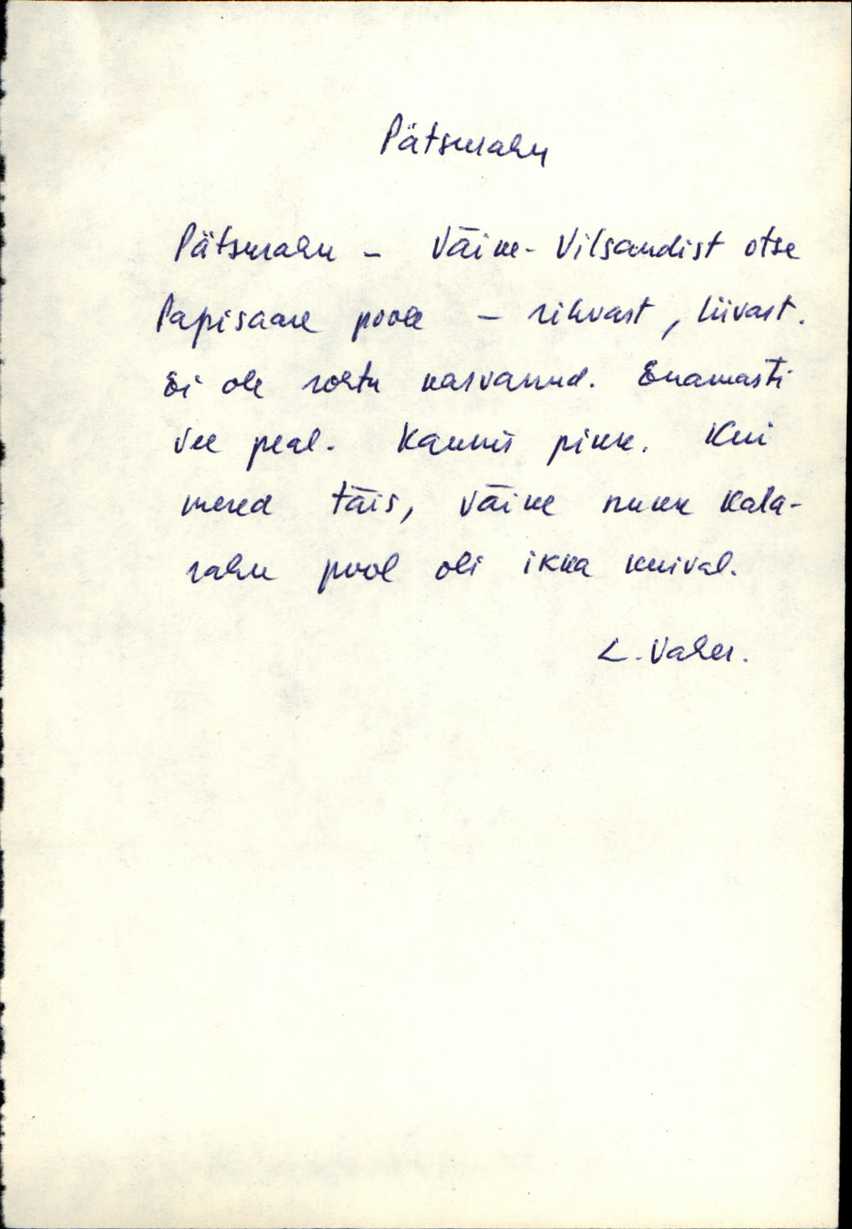 Pätsurahu
Pätsurahu – Väike-Vilsandist otse
Papisaare poole – rihvast, liivast.
Ei ole rohtu kasvanud. Enamasti
vee peal. Kaunis pikk. Kui
mered täis, väike nukk Kala-
rahu pool oli ikka kuival.
L. Vaher.